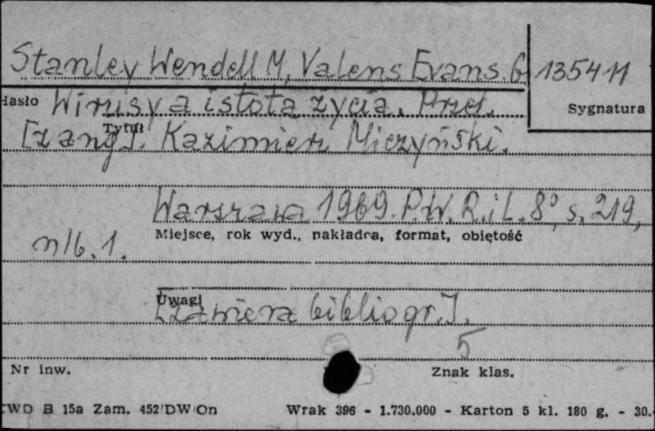 Stanley Wendell M, Valens Evans G 135411
Hasło Wirusy a istota życia. Przeł. Sygnatura
Tytuł
[z ang]. Kazimierz Miczyński.
Warszawa 1969. P.W.R.i L. 8°, s. 219,
Miejsce, rok wyd., nakładca, format, objętość
nlb. 1.
Uwagi
[zawiera bibliogr.].
5
Nr inw. Znak klas.
CWD B 15a Zam. 452/DW/On Wrak 396 - 1.730.000 - Karton 5 kl. 180 g. - 30.